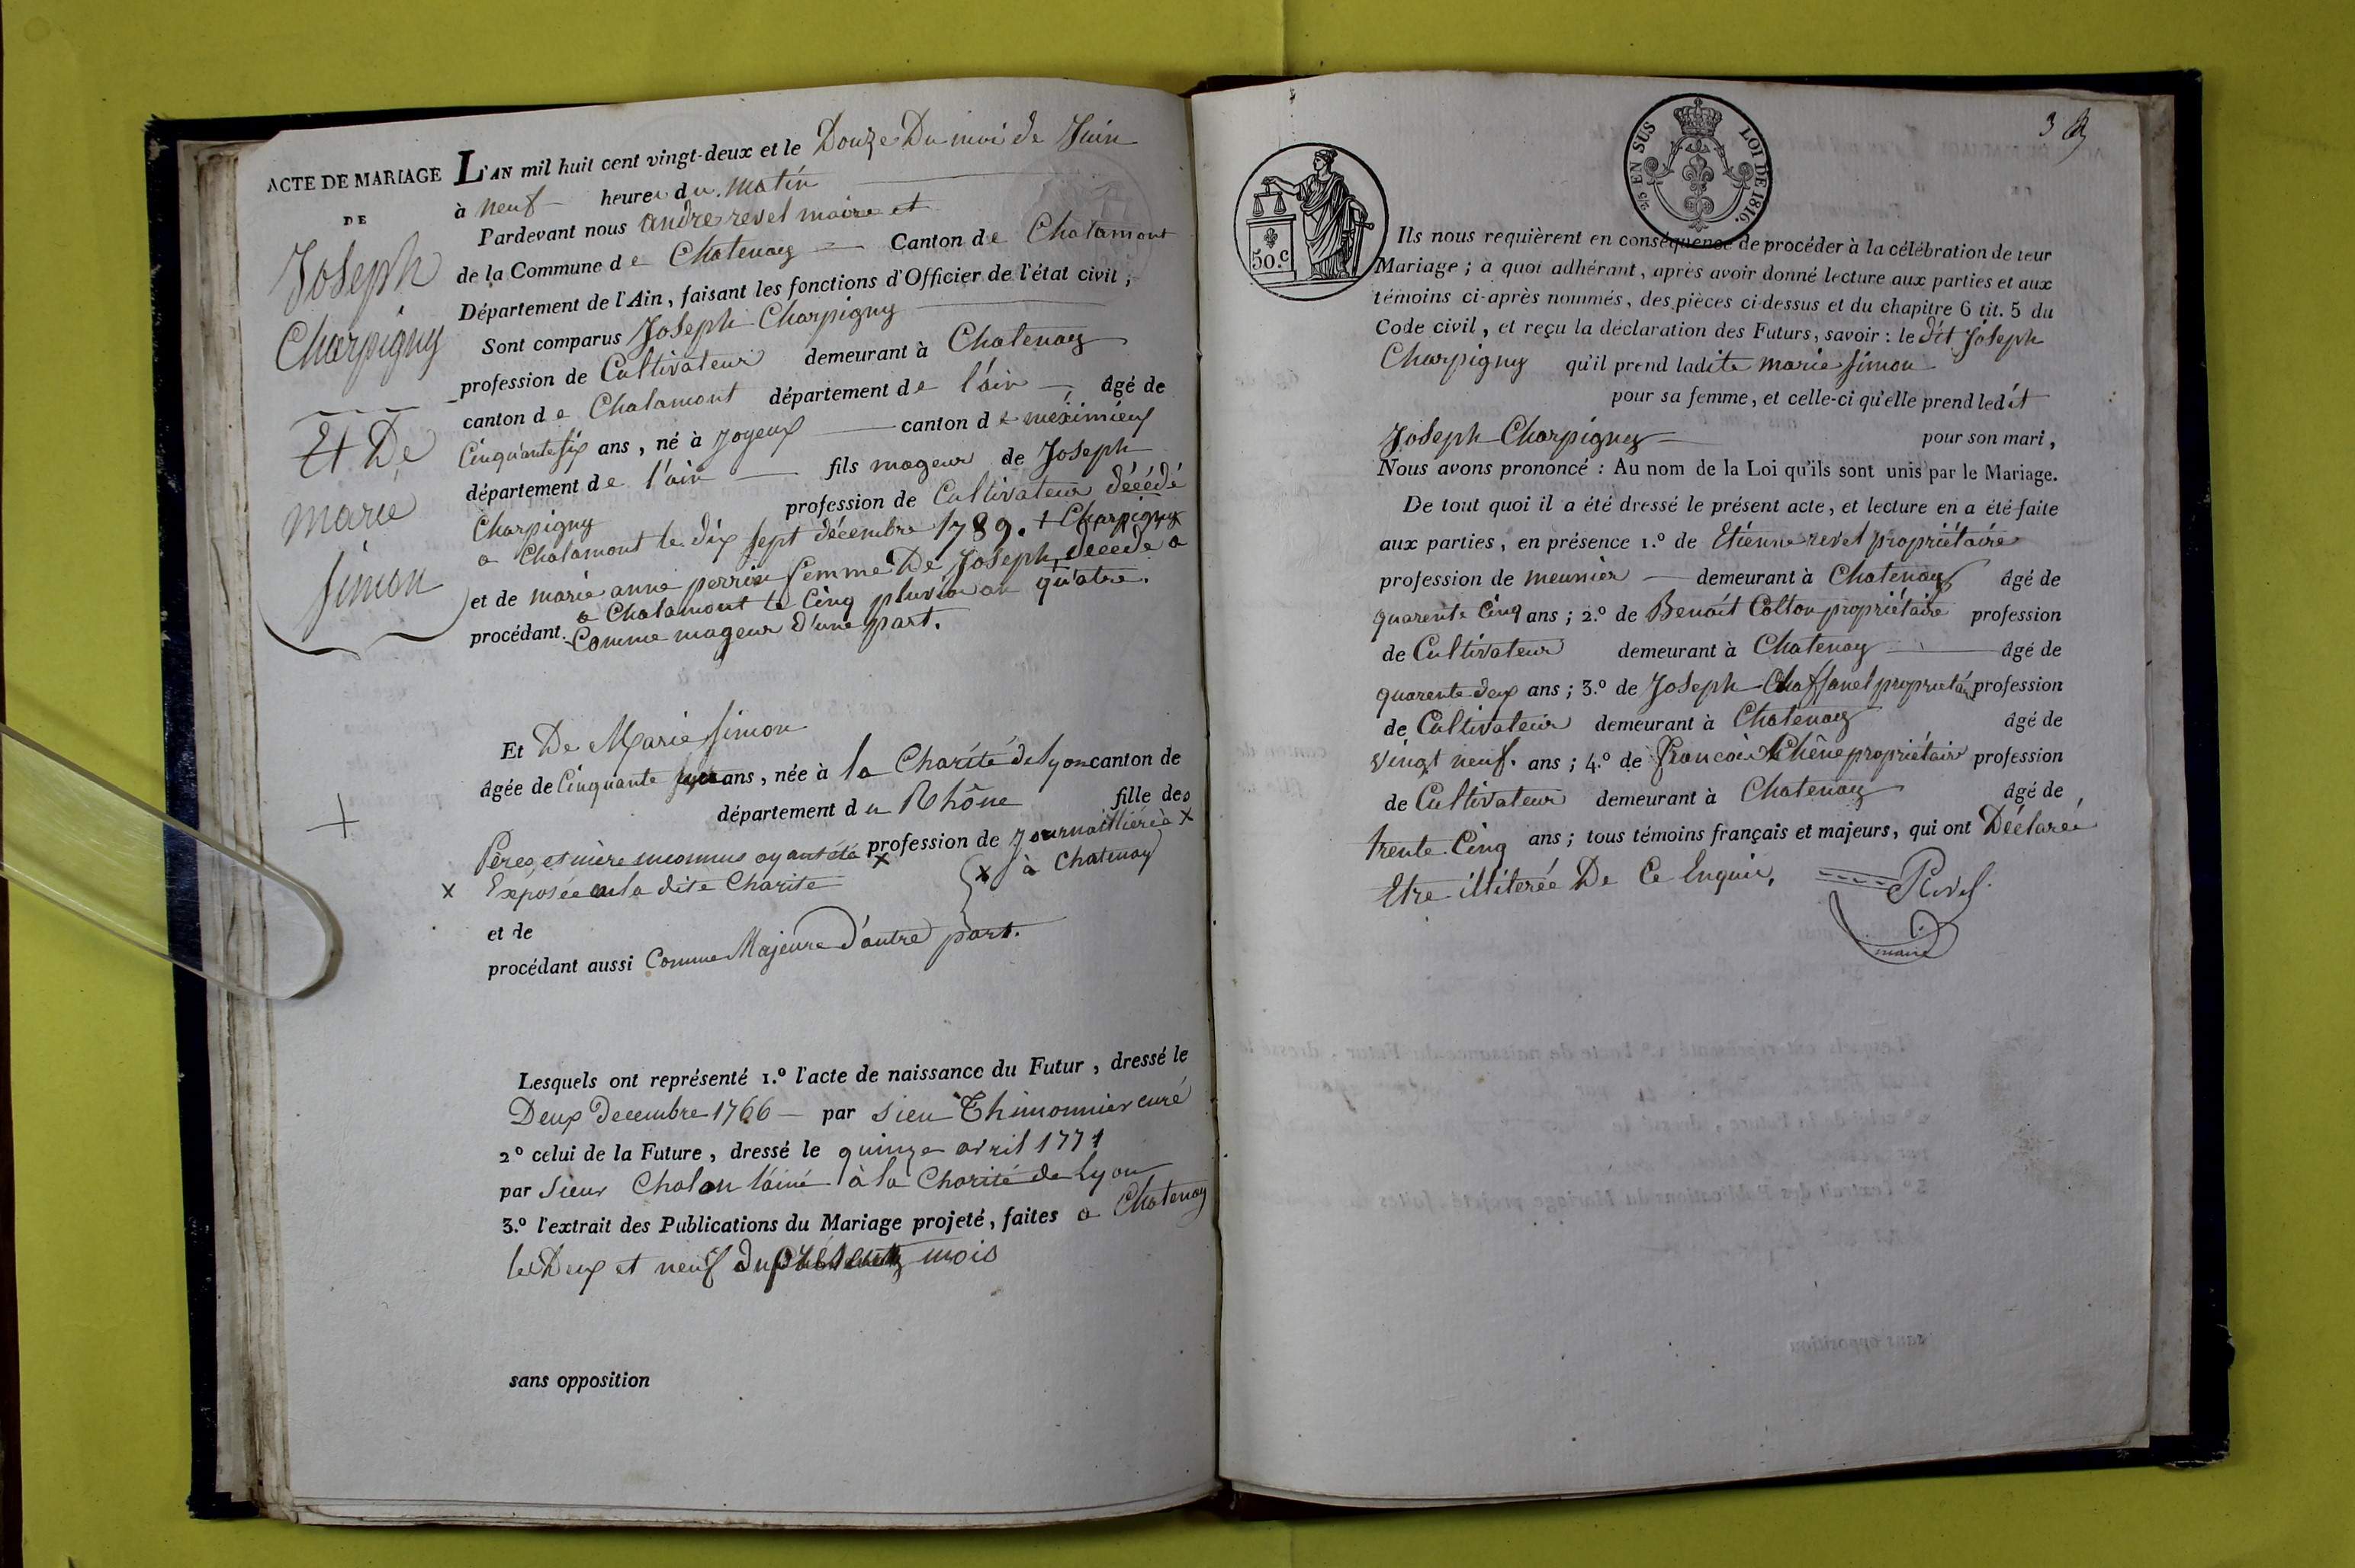 ACTE DE MARIAGE
DE
Joseph
Charpigny
Et De
marie
simon
L'AN mil huit cent vingt-deux et le Douze Du moi de Juin
à neuf heures du matin
Pardevant nous andre revel maire et
de la Commune de Chatenay Canton de Chalamont
Département de l'Ain, faisant les fonctions d'Officier de l'état civil,
Sont comparus Joseph Charpigny
profession de Cultivateur demeurant à Chatenay
canton de Chalamont département de l'ain âgé de
Cinquante six ans, né à Joyeux canton de meximieux
département de l'ain fils mageur de Joseph
Charpigny profession de Cultivateur décédé
a Chalamont le dix sept décembre 1789. + Charpigny
et de marie anne perrin femme De Joseph decede a
a Chalamont le Cinq pluviose an quatre.
procédant. Comme mageur d'une part.
Et De Marie simon
âgée de Cinquante ans, née à la Charité de lyon canton de
département du Rhône fille des
Père et mère inconnus ayant été x profession de Journaillière à x
x Exposée a la dite Charite x à Chatenay
et de
procédant aussi Comme Majeure d'autre part.
Lesquels ont représenté 1.º l'acte de naissance du Futur, dressé le
Deux Decembre 1766 par sieu Thimonnier curé
2º celui de la Future, dressé le quinze avril 1771
par sieur Chalan l'ainé à la Charité de Lyon
3.º l'extrait des Publications du Mariage projeté, faites a Chatenay
les Deux et neuf du présent mois
sans opposition
3
50.c
EN SUS
LOI DE 1816.
Ils nous requièrent en conséquence de procéder à la célébration de leur
Mariage; à quoi adhérant, après avoir donné lecture aux parties et aux
témoins ci-après nommés, des pièces ci-dessus et du chapitre 6 tit. 5 du
Code civil, et reçu la déclaration des Futurs, savoir : le dit Joseph
Charpigny qu'il prend ladite marie simon
pour sa femme, et celle-ci qu'elle prend ledit
Joseph Charpigny pour son mari,
Nous avons prononcé : Au nom de la Loi qu'ils sont unis par le Mariage.
De tout quoi il a été dressé le présent acte, et lecture en a été faite
aux parties, en présence 1.º de Etienne revel propriétaire
profession de meunier demeurant à Chatenay âgé de
quarente Cinq ans; 2.º de Benoit Colton propriétaire profession
de Cultivateur demeurant à Chatenay âgé de
quarente deux ans; 3.º de Joseph Chaffanel propriétaire profession
de Cultivateur demeurant à Chatenay âgé de
vingt neuf. ans; 4.º de francois Chêne propriétaire profession
de Cultivateur demeurant à Chatenay âgé de
trente Cinq ans; tous témoins français et majeurs, qui ont Déclarée
Etre illiterée De Ce Enquie, Revel
maire